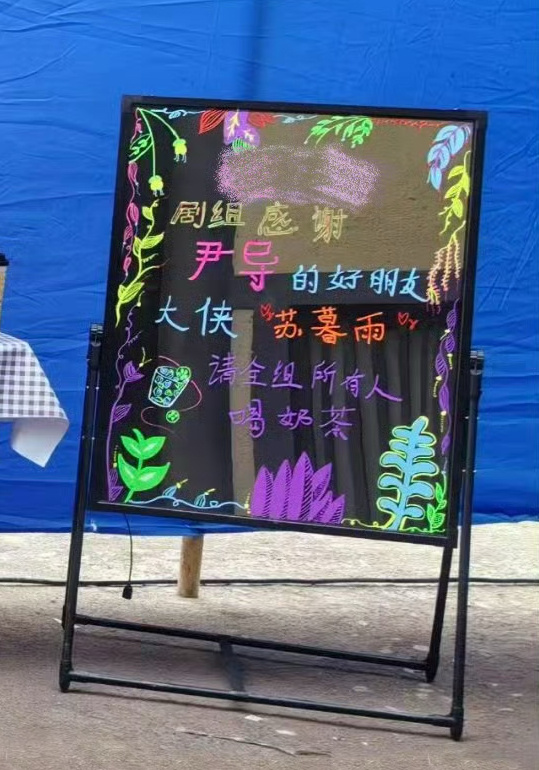 剧组感谢
尹导的好朋友
大侠“苏暮雨”
请全组所有人
喝奶茶